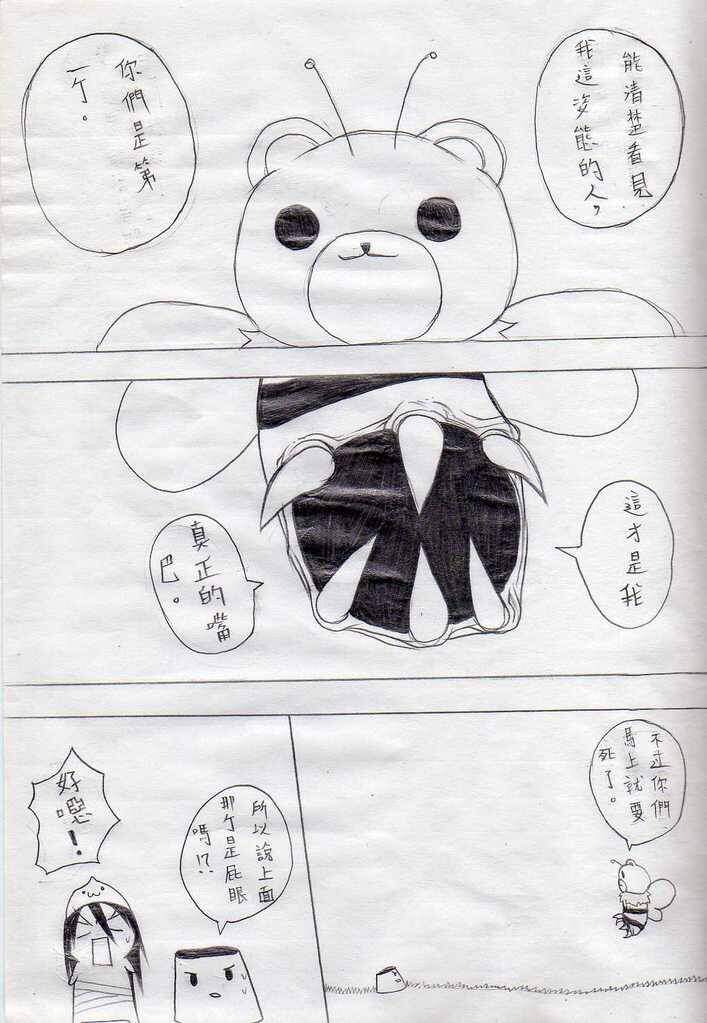 能清楚看見
我這姿態的人,
你們是第
一个。
這才是我
真正的嘴
巴。
不過你們
馬上就要
死了。
所以說上面
那个是屁眼
嗎!?
好噁!